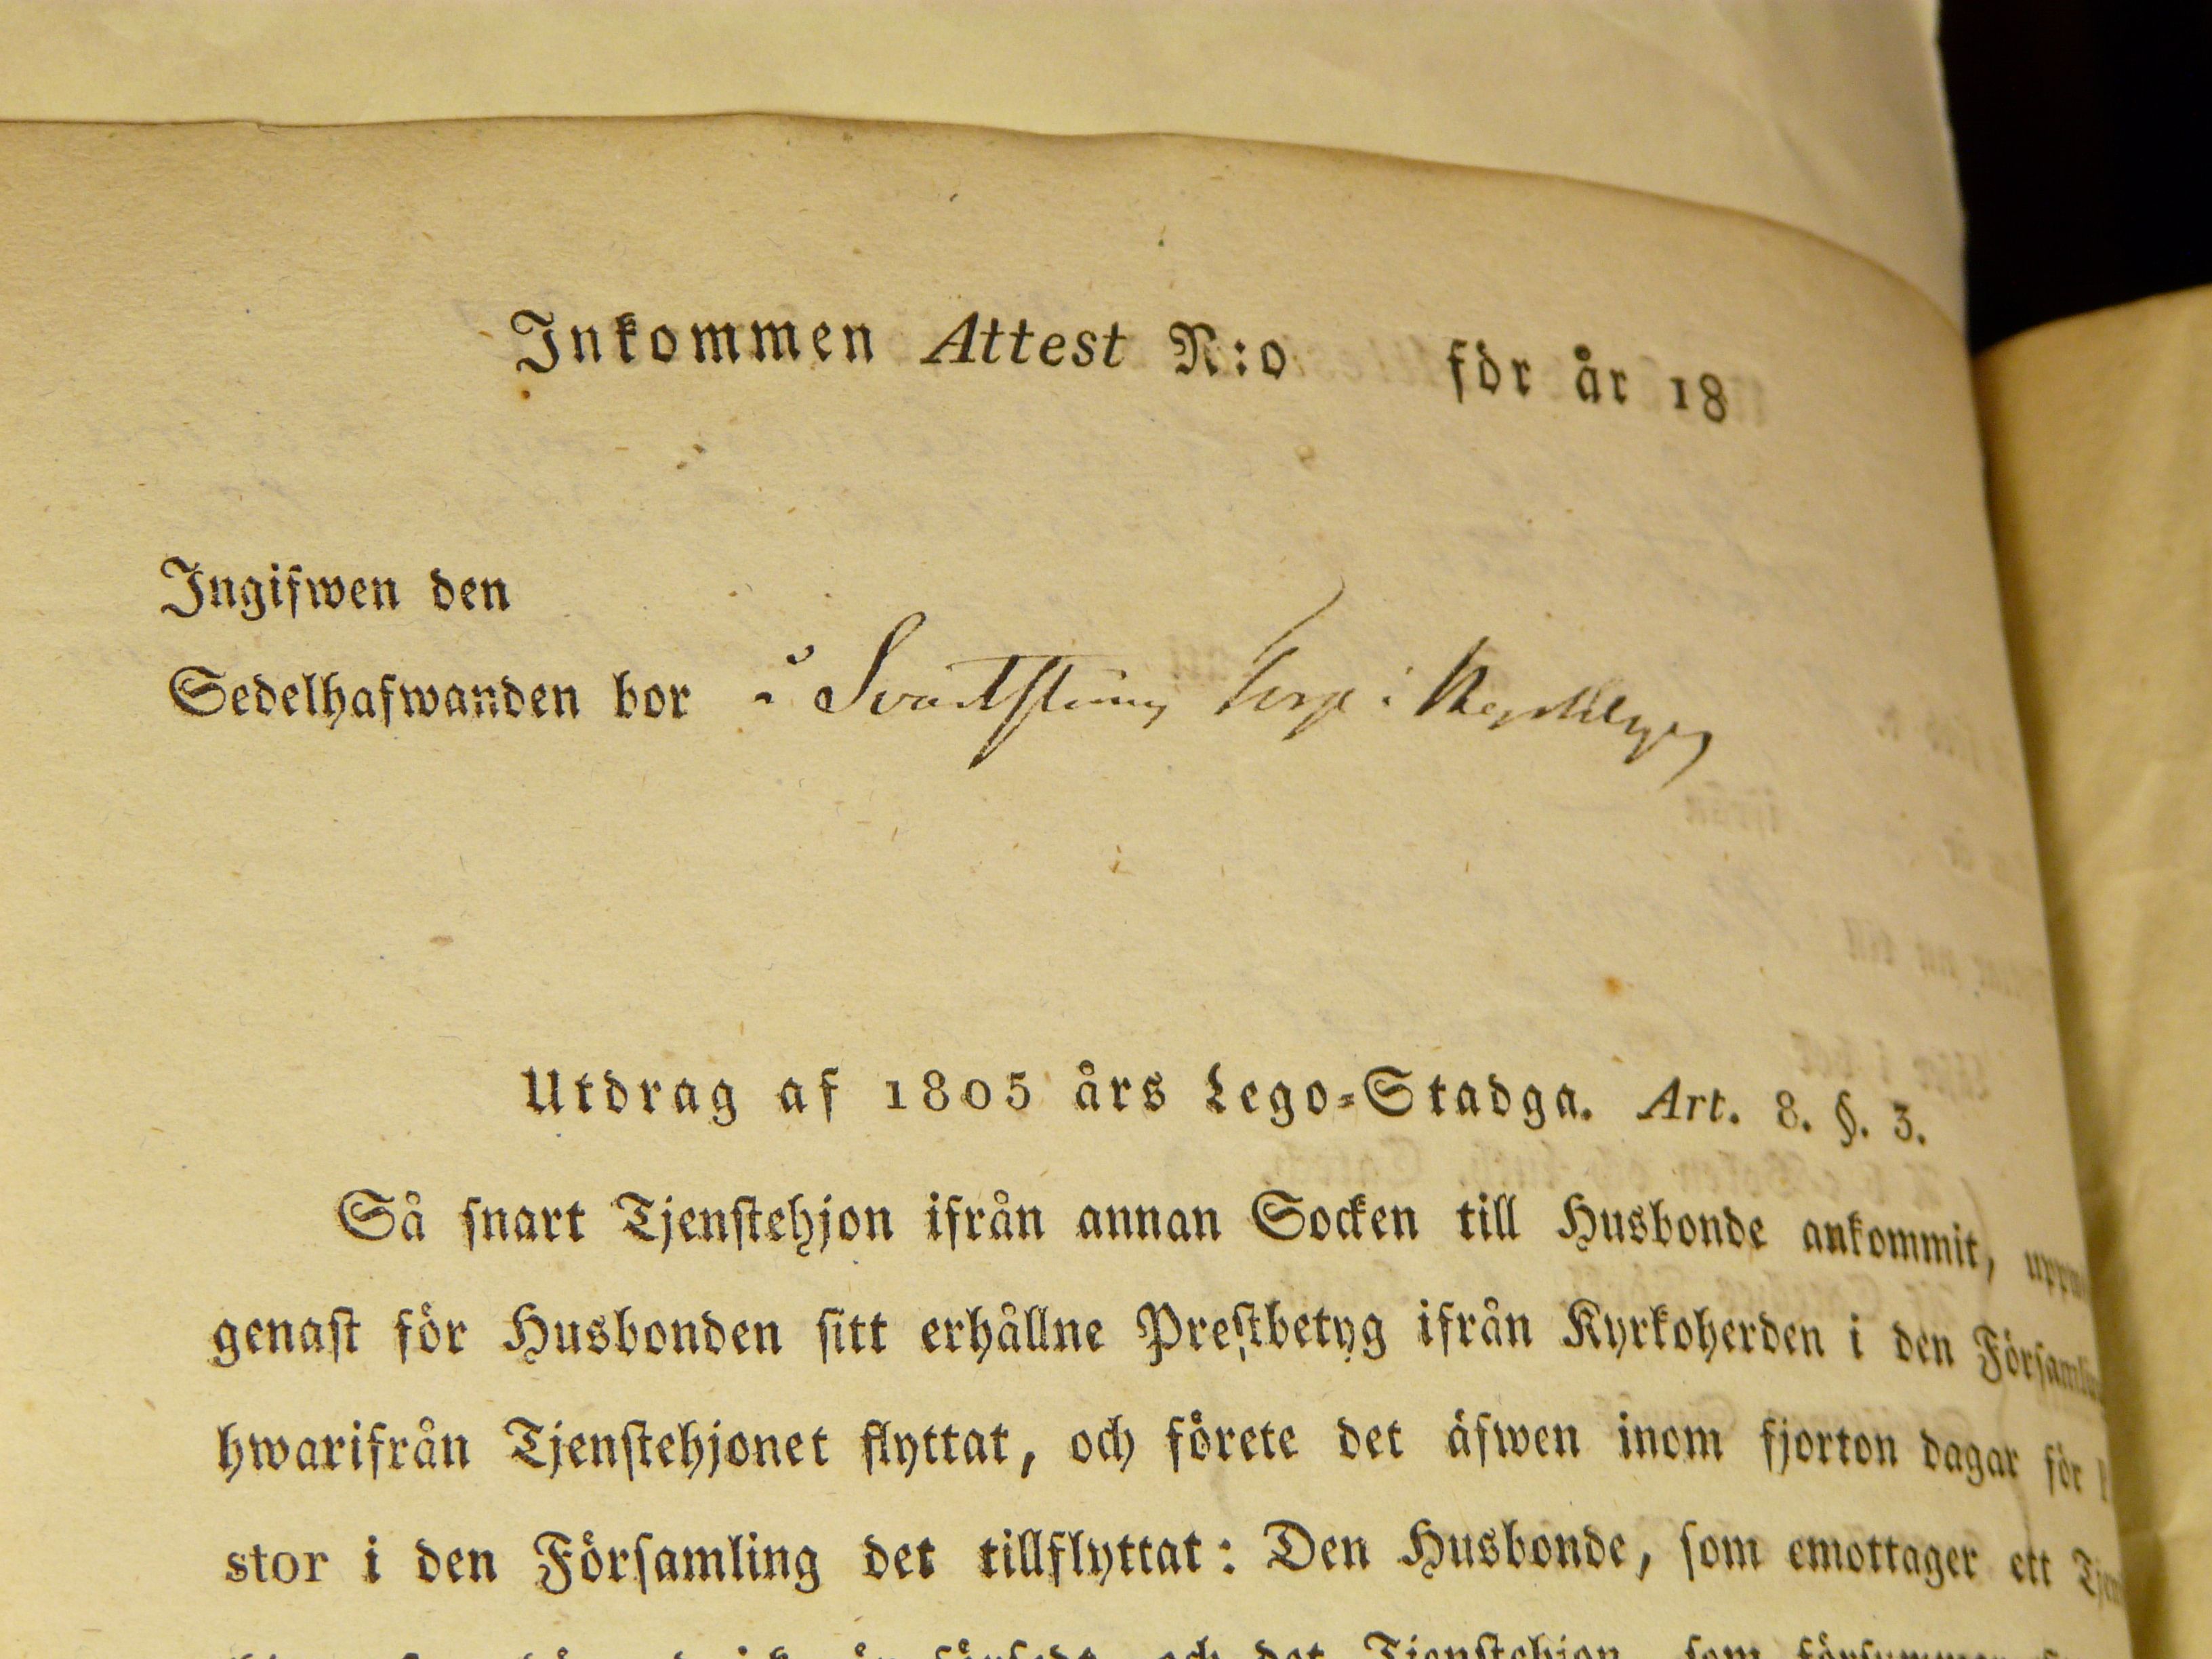 Inkommen Attest N:o för år 18
Ingifwen den
Sedelhafwanden bor i
Utdrag af 1805 års Lego-Stadga. Art. 8. §. 3.
Så snart Tjenstehjon ifrån annan Socken till Husbonde ankommit,
genast för Husbonden sitt erhållne Prestbetyg ifrån Kyrkoherden i den
hwarifrån Tjenstehjonet flyttat, och förete det äfwen inom fjorton dagar för
stor i den Församling det tillflyttat: Den Husbonde, som emottager ett
och det Tjenstehjon, som